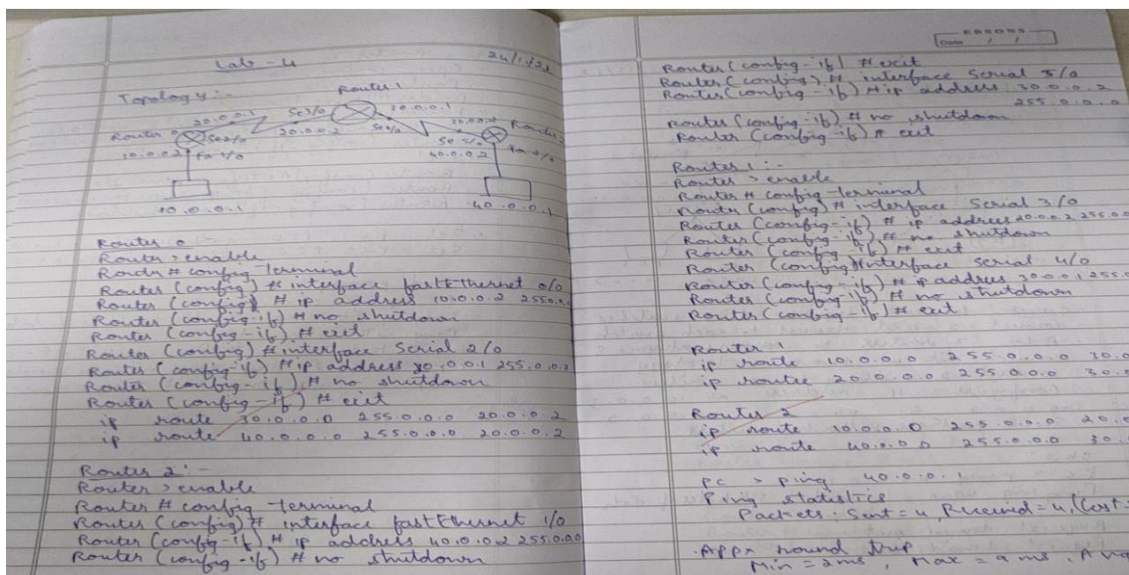 Lab - 4
24/11/21
Topology :-
Router 1
20.0.0.1
Se3/0
30.0.0.1
Router 0
Se2/0
20.0.0.2
10.0.0.2
40.0.0.2
10.0.0.1
40.0.0.1
Router 0 :-
Router > enable
Router # config - terminal
Router (config) # interface fastEthernet 0/0
Router (config) # ip address 10.0.0.2 255.0.0.
Router (config - if) # no shutdown
Router (config - if) # exit
Router (config) # interface Serial 2/0
Router (config - if) # ip address 20.0.0.1 255.0.0.
Router (config - if) # no shutdown
Router (config - if) # exit
ip route 30.0.0.0 255.0.0.0 20.0.0.2
ip route 40.0.0.0 255.0.0.0 20.0.0.2
Router 2 :-
Router > enable
Router # config - terminal
Router (config) # interface fastEthernet 1/0
Router (config) # ip address 40.0.0.2 255.0.0.0
Router (config - if) # no shutdown
EBSONS
Date / /
Router (config - if) # exit
Router (config) # interface Serial 5/0
Router (config - if) # ip address 30.0.0.2
255.0.0.0
Router (config - if) # no shutdown
Router (config - if) # exit
Router 1 :-
Router > enable
Router # config - terminal
Router (config) # interface Serial 3/0
Router (config - if) # ip address 20.0.0.2 255.0.0
Router (config - if) # no shutdown
Router (config - if) # exit
Router (config) interface Serial 4/0
Router (config - if) # ip address 30.0.0.1 255.0
Router (config - if) # no shutdown
Router (config - if) # exit
Router 1
ip route 10.0.0.0 255.0.0.0 30.0.
ip routee 20.0.0.0 255.0.0.0 30.0.
Router 2
ip route 10.0.0.0 255.0.0.0 20.0.
ip route 40.0.0.0 255.0.0.0 30.0.
PC > ping 40.0.0.1
Ping statistics
Packets : Sent = 4, Received = 4, (Lost =
Appx round trip
Min = 2ms, Max = 9 ms,